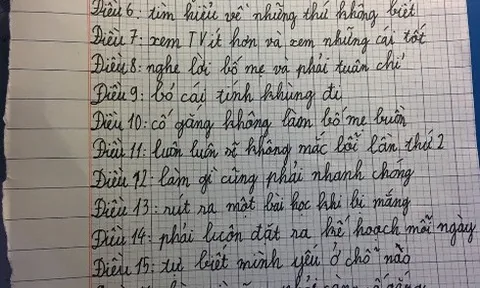 Điều 6: tìm hiểu về những thứ không biết
Điều 7: xem TV ít hơn và xem những cái tốt
Điều 8: nghe lời bố mẹ và phải tuân chỉ
Điều 9: bỏ cái tính khùng đi
Điều 10: cố gắng không làm bố mẹ buồn
Điều 11: luôn luôn sẽ không mắc lỗi lần thứ 2
Điều 12: làm gì cũng phải nhanh chóng
Điều 13: rút ra một bài học khi bị mắng
Điều 14: phải luôn đặt ra kế hoạch mỗi ngày
Điều 15: tự biết mình yếu ở chỗ nào